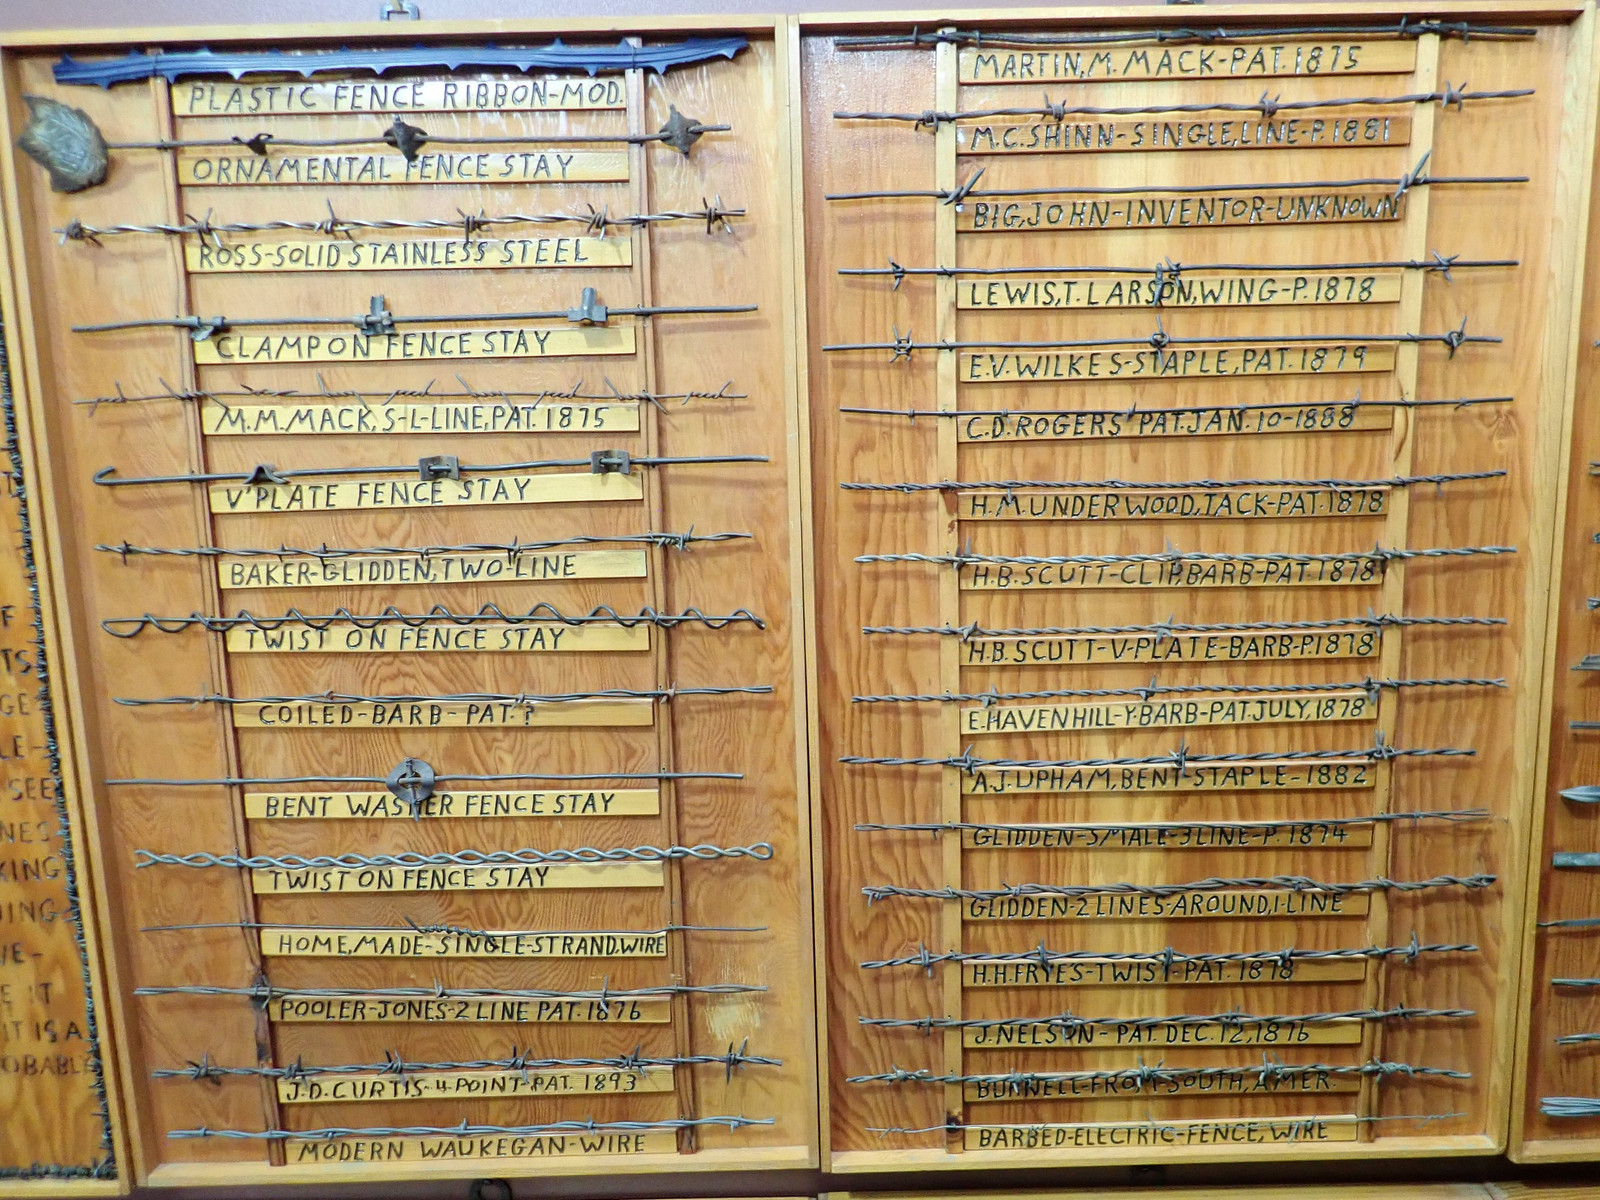 PLASTIC FENCE RIBBON-MOD.
ORNAMENTAL FENCE STAY
ROSS-SOLID STAINLESS STEEL
CLAMP ON FENCE STAY
M.M.MACK, S-L-LINE, PAT. 1875
V'PLATE FENCE STAY
BAKER-GLIDDEN, TWO-LINE
TWIST ON FENCE STAY
COILED-BARB-PAT.?
BENT WASHER FENCE STAY
TWIST ON FENCE STAY
HOME, MADE-SINGLE-STRAND.WIRE
POOLER-JONES-2 LINE PAT. 1876
J.D.CURTIS-4 POINT-PAT. 1893
MODERN WAUKEGAN-WIRE
MARTIN, M. MACK-PAT. 1875
M.C. SHINN-SINGLE, LINE-P. 1881
BIG, JOHN-INVENTOR-UNKNOWN
LEWIS, T. LARSON, WING-P. 1878
E.V. WILKES-STAPLE, PAT. 1879
C.D. ROGERS' PAT. JAN. 10-1888
H.M. UNDERWOOD, TACK-PAT. 1878
H.B. SCUTT-CLIP, BARB-PAT. 1878
H.B. SCUTT-V-PLATE-BARB-P. 1878
E. HAVENHILL-Y-BARB-PAT. JULY, 1878
A.J. UPHAM, BENT-STAPLE-1882
GLIDDEN-SMALE-3LINE-P. 1874
GLIDDEN-2 LINES-AROUND, 1-LINE
H.H. FRYES-TWIST-PAT. 1878
J. NELSON-PAT. DEC. 12, 1876
BUNNELL-FROM-SOUTH, AMER.
BARBED-ELECTRIC-FENCE, WIRE
SEE
IT
IT IS A